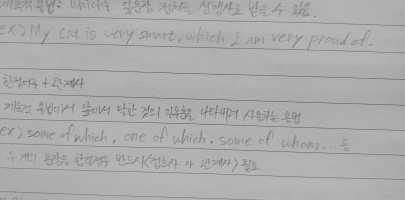 계속적 용법: which는 앞문장 전체를 선행사로 받을 수 있음.
ex> My cat is very smart, which I am very proud of.
한정어구 + 관계사
계속적 용법에서 앞에서 말한 것의 일부분을 나타내며 사용하는 용법
ex> some of which, one of which, some of whom... 등
두 개의 문장을 합칠경우 반드시 <접속사 or 관계사> 필요